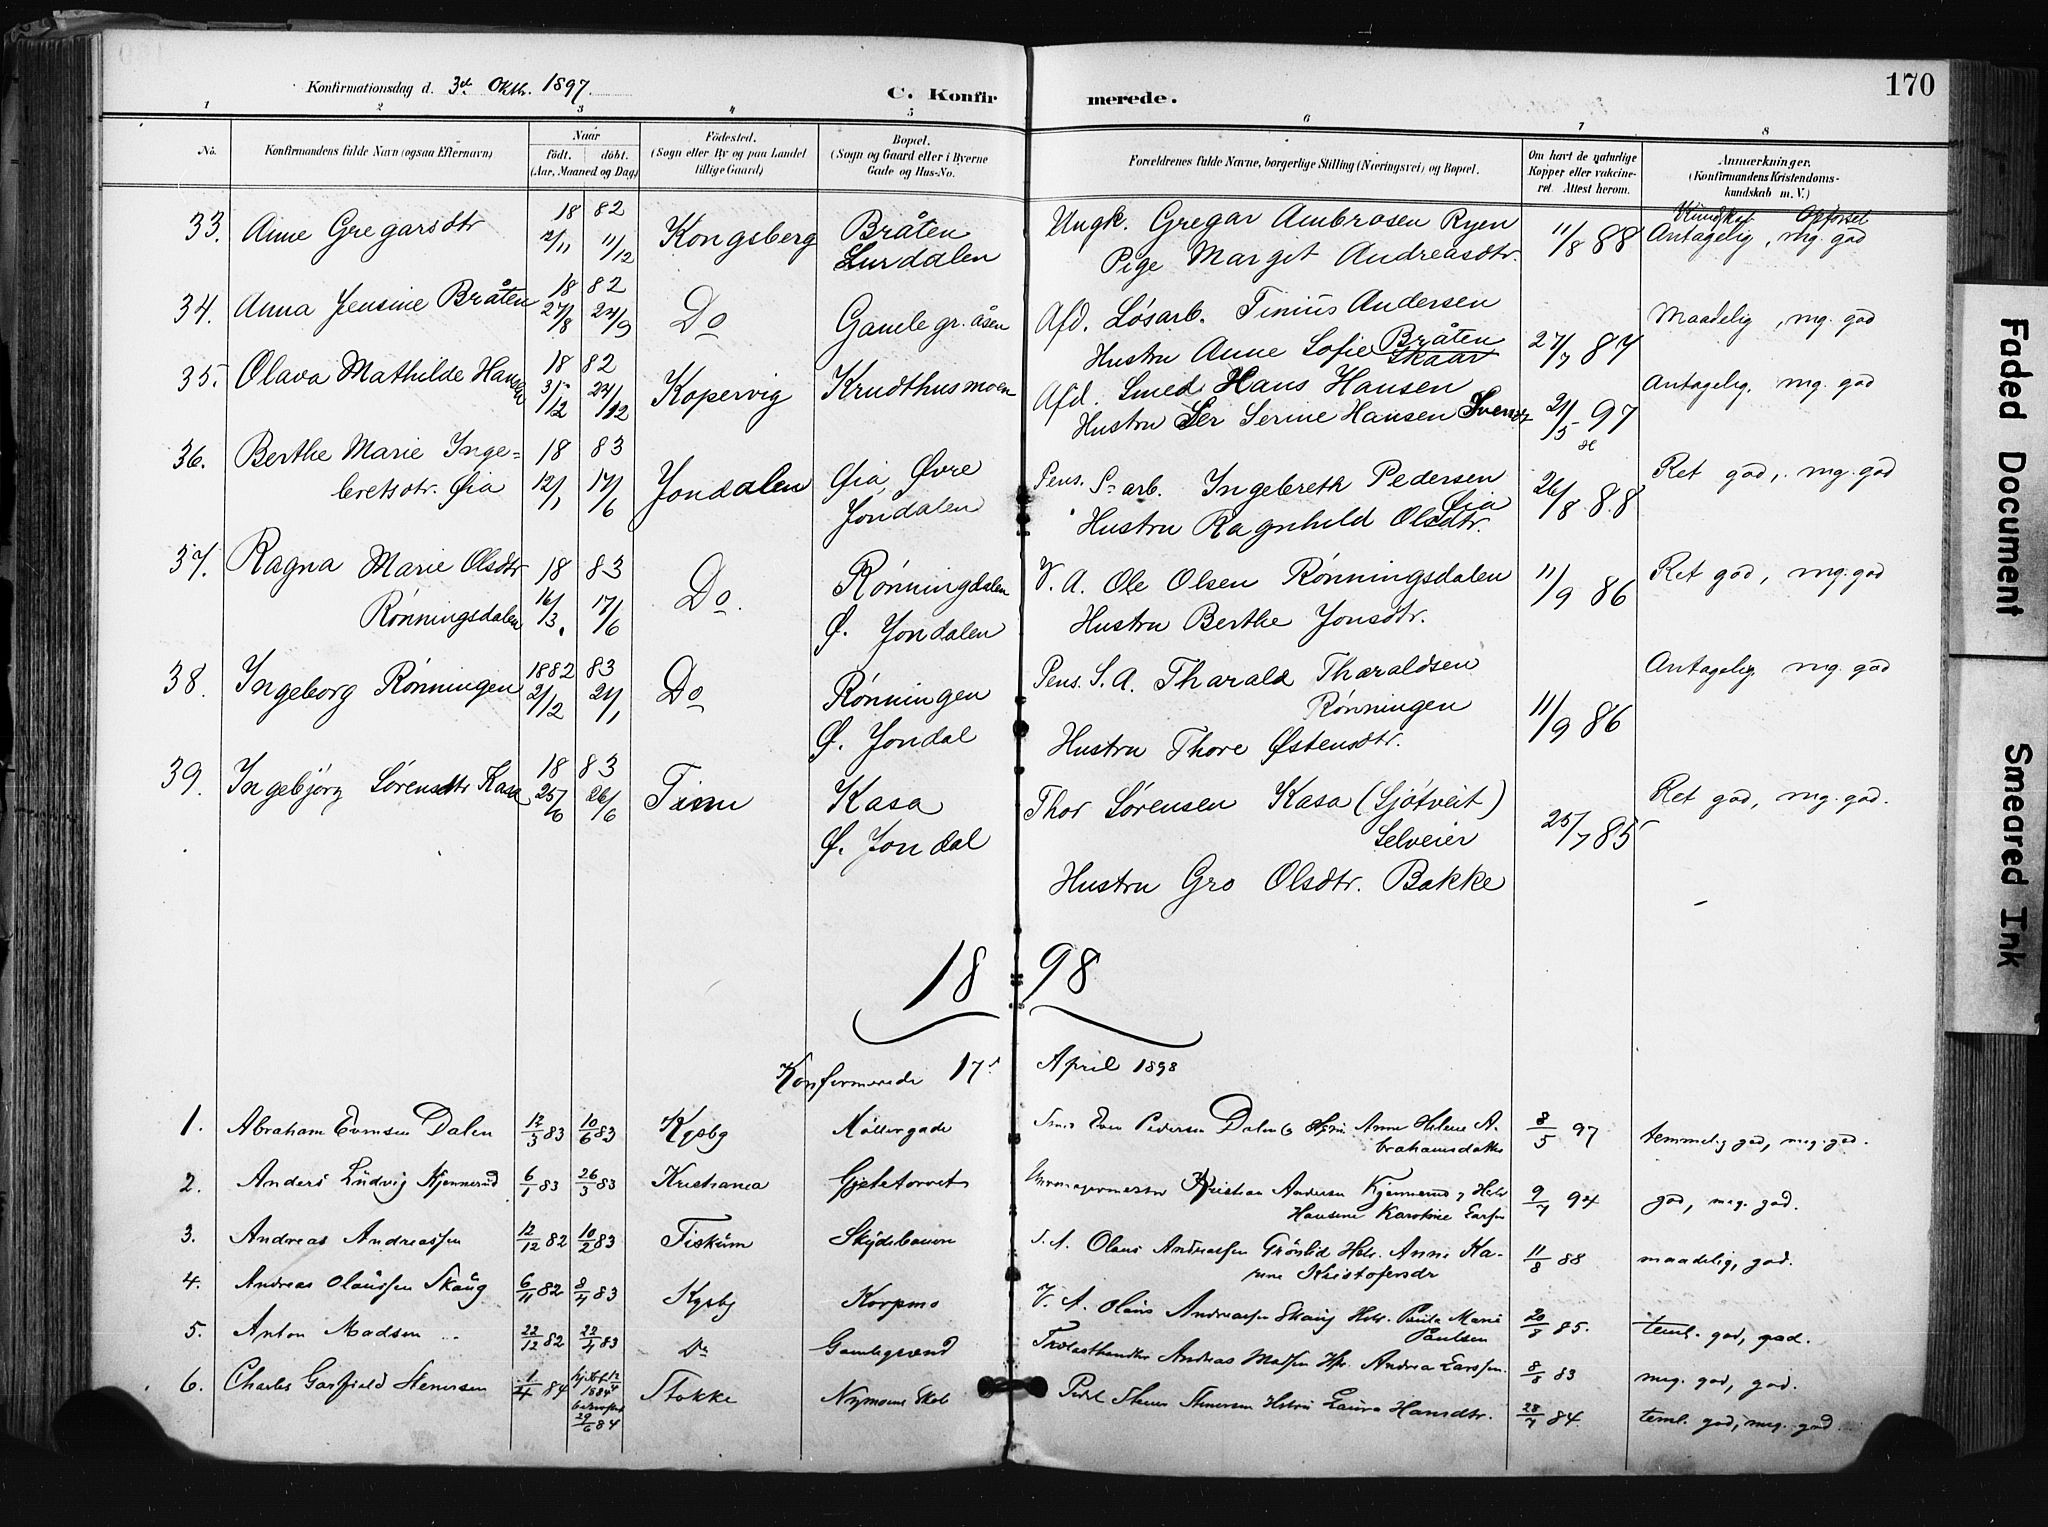 170
Konfirmationsdag d. 3die Oktbr. 1897.
C. Konfirmerede.
1 2 3 4 5 6 7 8
No.
Konfirmandens fulde Navn (ogsaa Efternavn)
Naar
födt. döbt.
(Aar, Maaned og Dag)
Födested.
(Sogn eller By og paa Landet tillige Gaard)
Bopæl.
(Sogn og Gaard eller i Byerne Gade og Hus-No.
Forældrenes fulde Navne, borgerlige Stilling (Næringsvei) og Bopæl.
Om havt de naturlige Kopper eller vaccineret. Attest herom.
Anmærkninger.
(Konfirmandens Kristendomskundskab m. V.)
Kundskab Opførsel
33. Anne Gregarsdtr 18 82 12/11 11/12 Kongsberg Bråten Lurdalen Ungk. Gregar Ambrosen Ryen 11/8 88 Antagelig, mg. god
Pige Margit Andreasdtr.
34. Anna Jensine Bråten 18 82 27/8 24/9 Do Gamle gr. åsen Afd. Løsarb. Tinius Andersen 27/7 87 Maadelig, mg. god
Hustru Anne Sofie Bråten Skaar
35. Olava Mathilde Hansen 18 82 3/12 24/12 Kopervig Krudthusmoen Afd. Smed Hans Hansen 21/5 97 Antagelig, mg. god
Hustru Ser Serine Hansen
36. Berthe Marie Ingebretsdtr. Øia 18 83 12/1 17/6 Jondalen Øia, Øvre Jondalen Pens. S. arb. Ingebreth Pedersen Øia 26/8 88 Ret god, mg. god
Hustru Ragnhild Olsdtr.
37. Ragna Marie Olsdtr Rønningsdalen 18 83 16/3 17/6 Do. Rønningdalen Ø. Jondalen V. A. Ole Olsen Rønningsdalen 11/9 86 Ret god, mg. god
Hustru Berthe Jonsdtr.
38. Ingeborg Rønningen 1882 83 21/12 21/1 Do Rønningen Ø. Jondal Pens. S. A. Tharald Tharaldsen Rønningen 11/9 86 Antagelig, mg. god
Hustru Thore Østensdtr.
39. Ingebjörg Sørensdtr Kasa 18 83 25/6 26/6 Tinn Kasa Ø. Jondal Thor Sørensen Kasa (Sjötveit) Selveier 25/7 85 Ret god, mg. god.
Hustru Gro Olsdtr. Bakke
1898
Konfirmerede 17de April 1898
1. Abraham Evensen Dalen 12/3 83 10/6 83 Kgsbg Möllergade Even Pedersen Dalen Anne Helene Abrahamsdatter 8/5 97 temmelig god, meg. god.
2. Anders Ludvig Kjennerud 6/1 83 26/3 83 Kristiania Gjetetorvet Kristian Andersen Kjennerud Hansine Karoline Larsen 9/7 94 god, meg. god.
3. Andreas Andreassen 12/12 82 10/2 83 Fiskum Skydebanen S. A. Olaus Andreassen Grönlid Hstr. Anne Ka- Kristofersdr 11/8 88 maadelig, god.
4. Andreas Olaussen Skaug 6/11 82 8/4 83 Kgsbg Korpmo V. A. Olaus Andreassen Skaug Hstr. Paula Marie Paulsen 20/8 85. teml. god, god.
5. Anton Madsen 22/12 82 22/4 83 Do Gamlegrænd Andreas Madsen Hstr. Andrea Larssen. 8/8 83 meg. god, god.
6. Charles Garfield Stenersen 1/4 84 hjdbt 12/4 1884 29/6 84 Stokke Nymoens Skole Stener Stenersen Hstru Laura Hansdtr. 28/7 84. teml. god, meg. god.
Faded Document
Smeared Ink